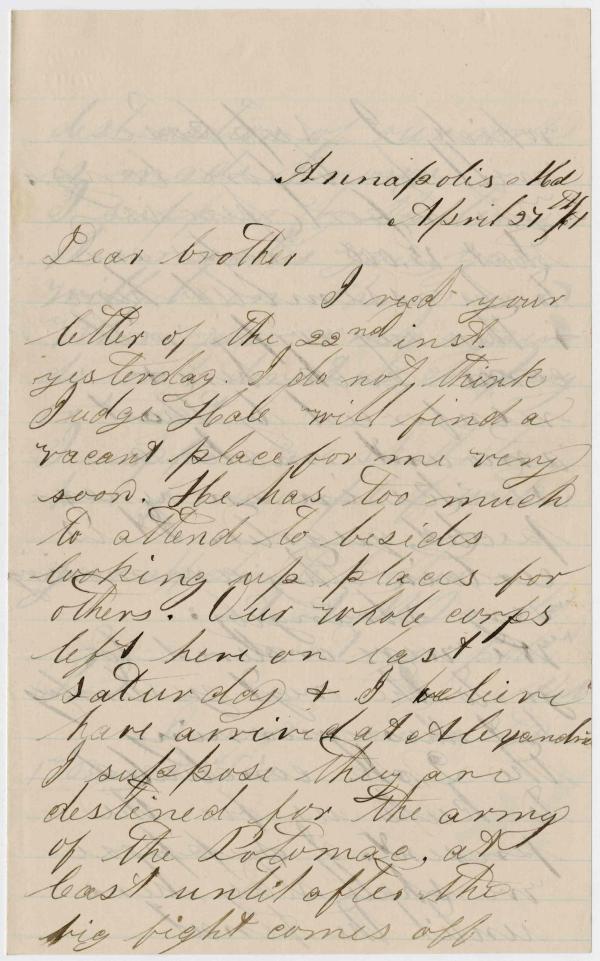 Annapolis Md
April 27th/64
Dear brother
I recd your
letter of the 22nd inst.
yesterday. I do not think
Judge Hale will find a
vacant place for me very
soon. He has too much
to attend to besides
looking up places for
others. Our whole corps
left here on last
Saturday & I believe
have arrived at Alexandria
I suppose they are
destined for the army
of the Potomac, at
least until after the
big fight comes off